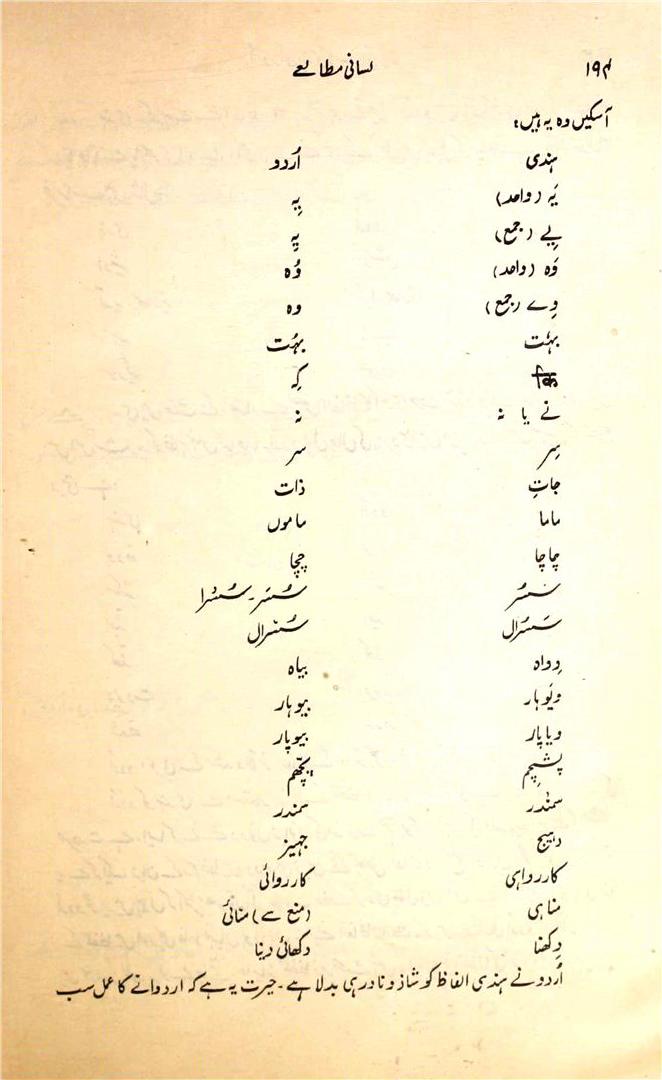 ۱۹۴ لسانی مطالعے
آسکیں وہ یہ ہیں:
ہندی اُردو
یَہ (واحد) یِہ
یے (جمع) یِہ
وَہ (واحد) وُہ
وے (جمع) وہ
بہُت بہُت
कि کِہ
نے یا نہ نہ
سِر سر
جاتِ ذات
ماما ماموں
چاچا چچا
سَسُر سُسَر۔سُسْرا
سَسُرال سُسْرال
وِواہ بیاہ
ویَوہار بیوہار
ویاپار بیوپار
پشچِم پچّھم
سمُندر سمندر
دہیج جہیز
کاررواہی کارروائی
مناہی (منع سے) منائی
دِکھنا دکھائی دینا
اُردو نے ہندی الفاظ کو شاذ و نادر ہی بدلا ہے۔ حیرت یہ ہے کہ اردوانے کا عمل سب